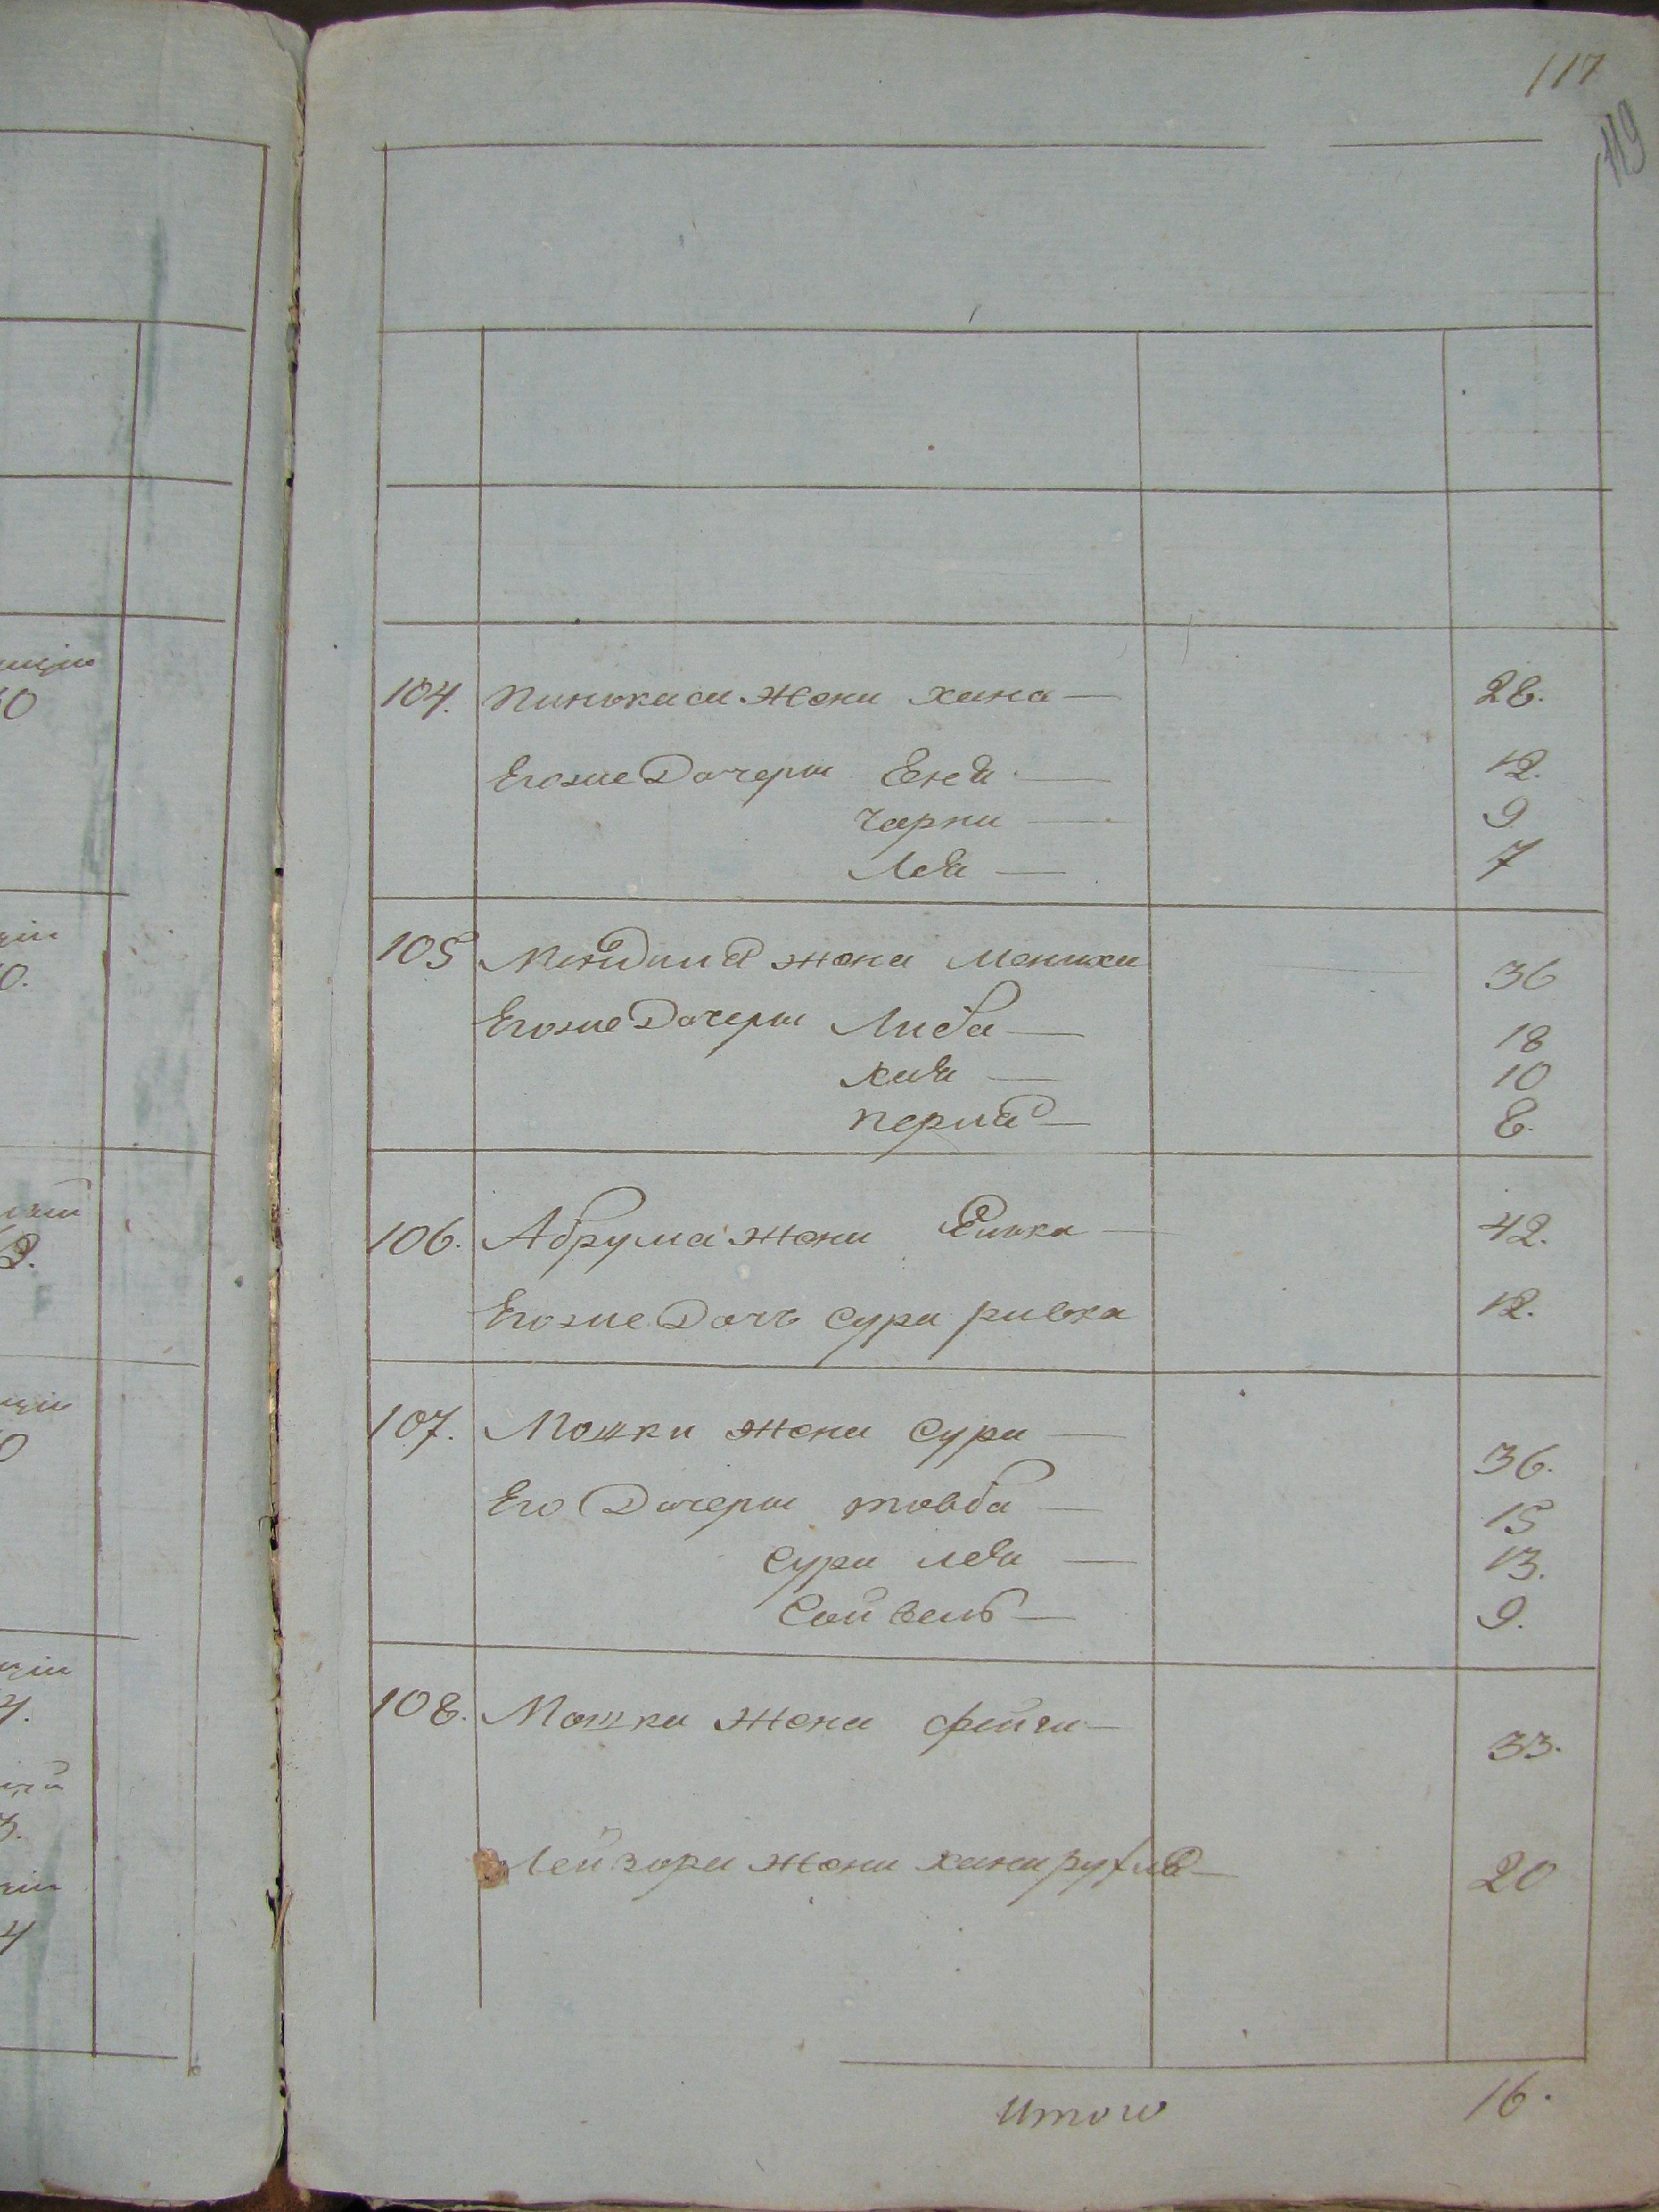 117
119
104. Пинькаса жена хана — 28.
Егоже Дочери Ента — 12.
Чарна — 9
Лея — 7
105 Менделя жена Маниха 36
Егоже Дочери Либа — 18
хая — 10
перла — 8.
106. Абрума жена Елька — 42.
Егоже Дочь Сура ривка 12.
107. Мошки жена Сура — 36.
Его Дочери товба — 15
Сура лея — 13.
Сойвель — 9.
108. Мошка жена фейга — 33.
Лейзора жена хана рухля — 20
Итого 16.